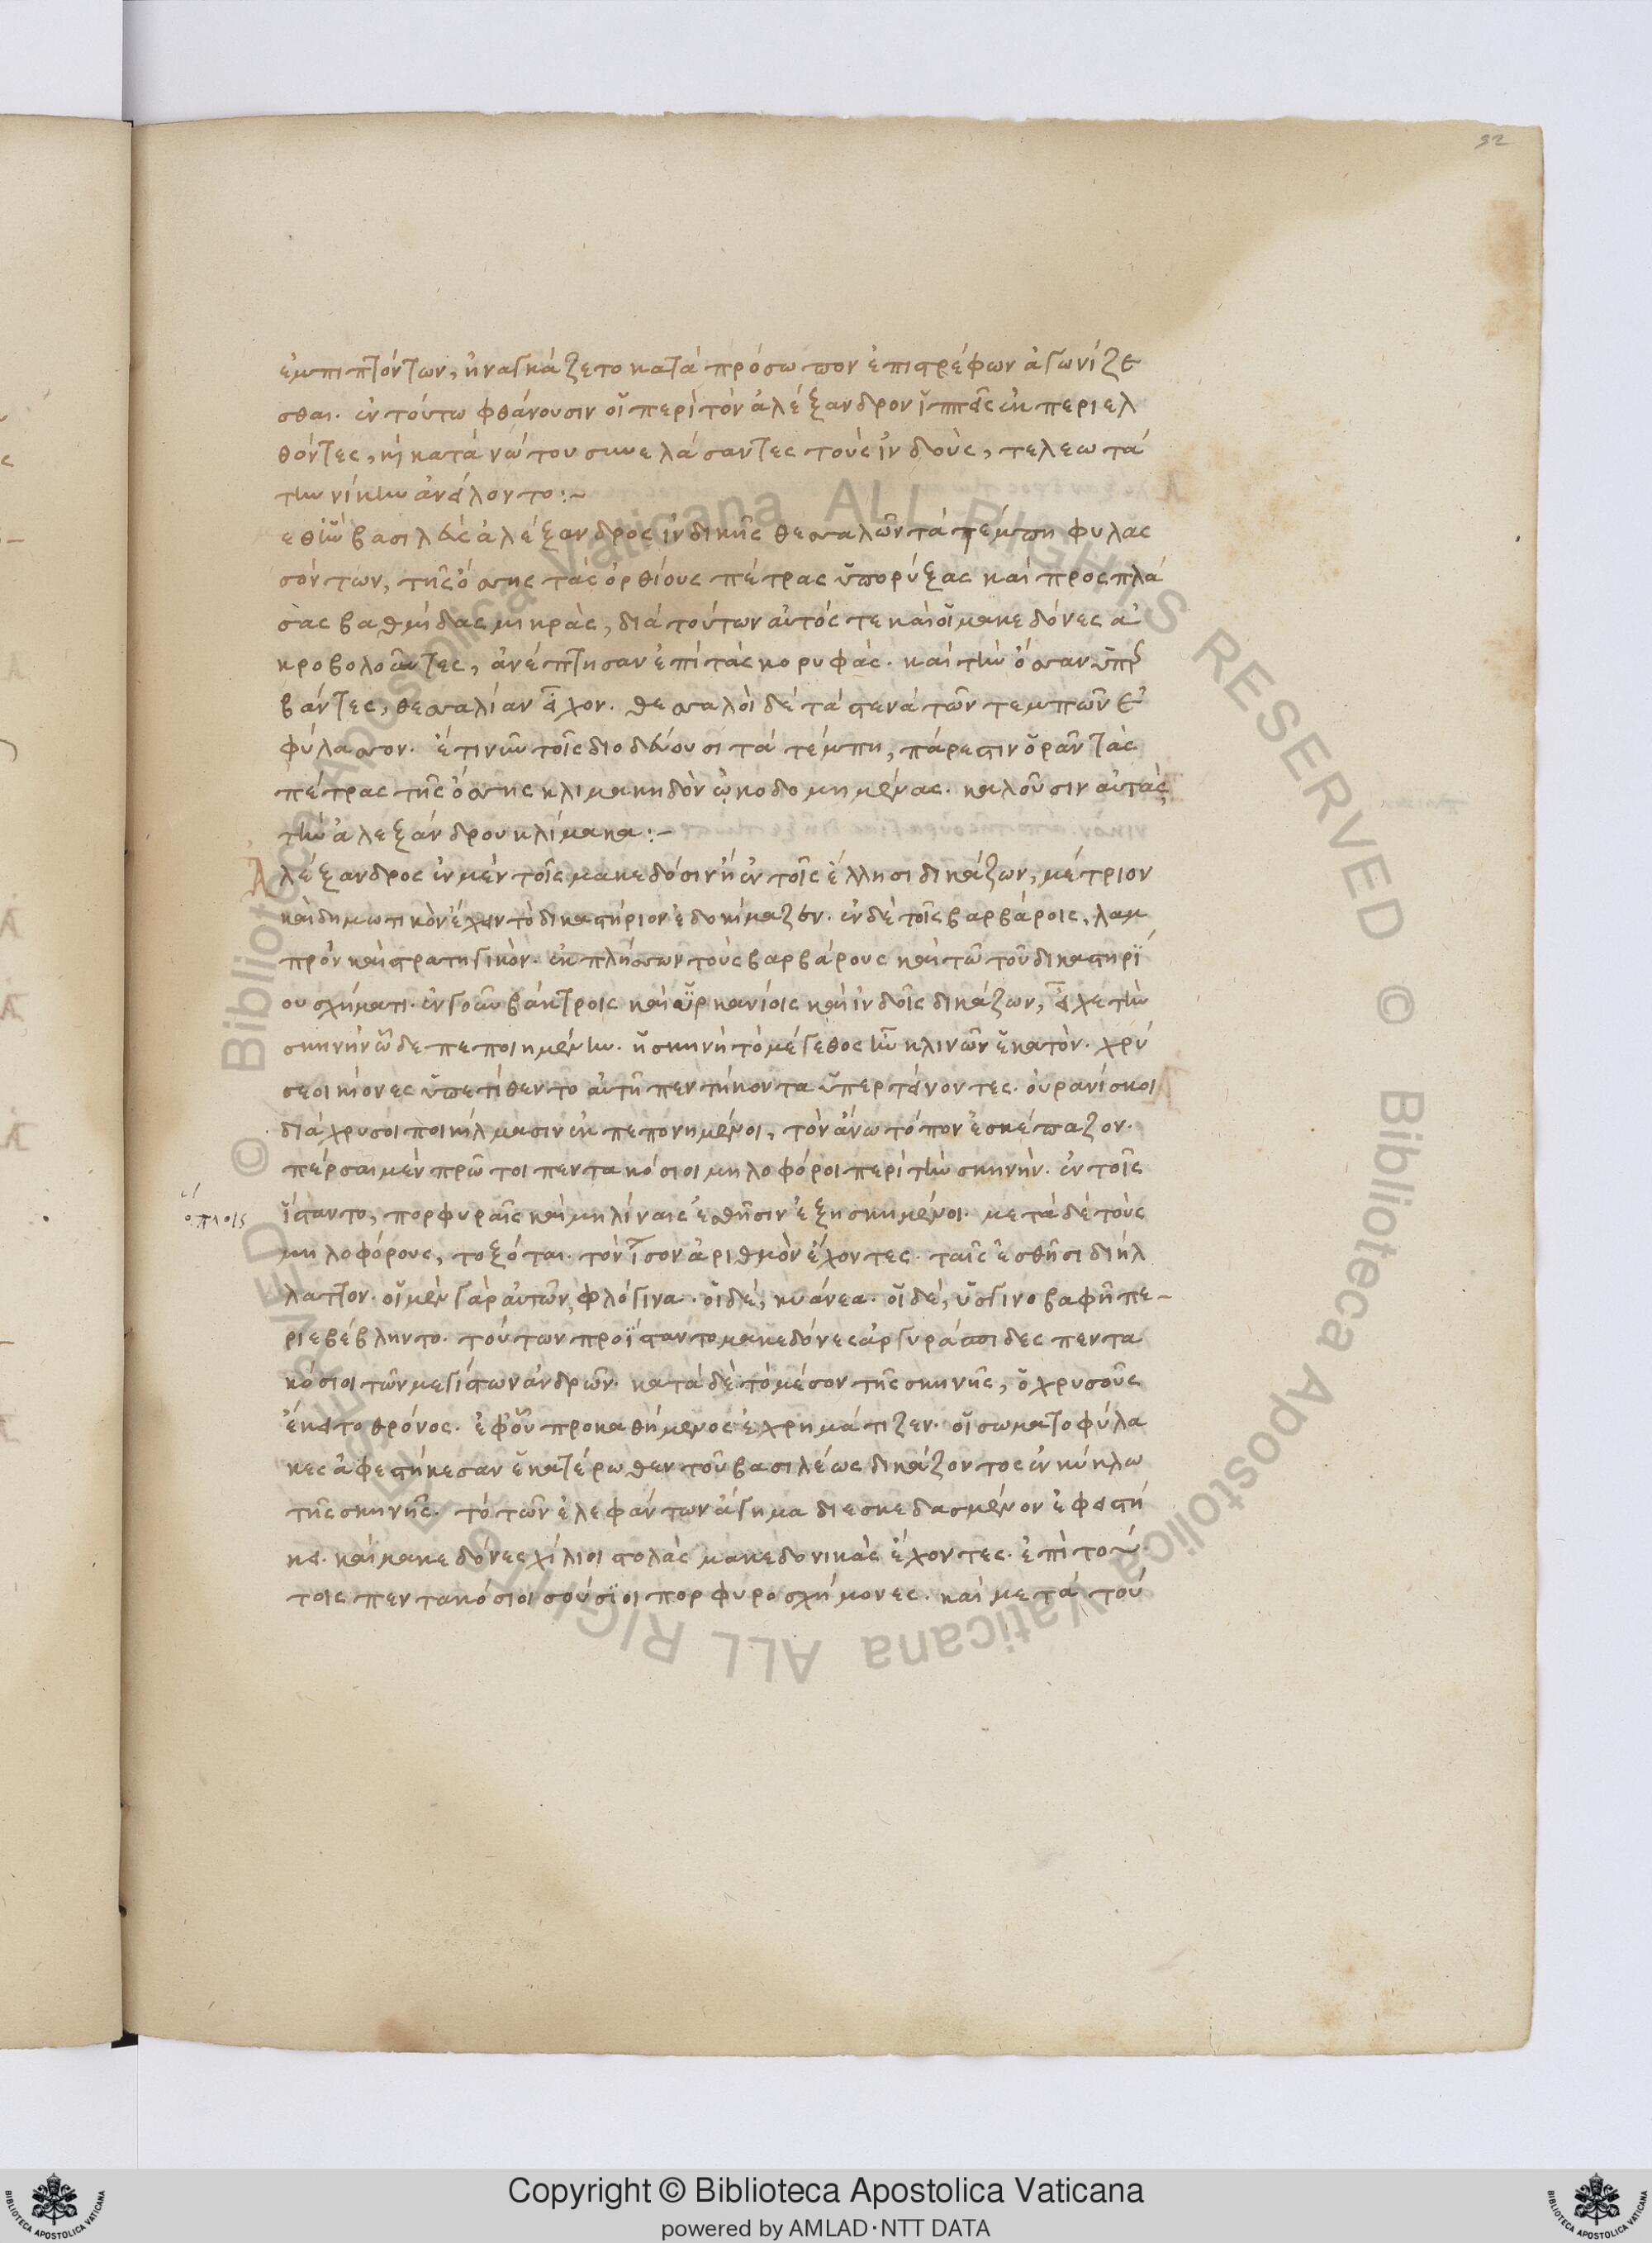 92
ἐμπιπτόντων, ἠναγκάζετο κατὰ πρόσωπον ἐπιστρέφων ἀγωνίζε
σθαι. ἐν τούτω φθάνουσιν οἱ περὶ τὸν ἀλέξανδρον ἱππεῖς ἐκπεριελ
θόντες, καὶ κατὰ νώτου συνελάσαντες τοὺς ἰνδοὺς, τελεωτά
την νίκην ἀνείλοντο:~
εθην βασιλεὺς ἀλέξανδρος ἰνδικῆς θεσσαλῶν τὰ τέμπη φυλας
σόντων, τῆς ὄσσης τὰς ὀρθίους πέτρας ὑπορύξας καὶ προσπλά
σας βαθμίδας μικρὰς, διὰ τούτων αὐτός τε καὶ οἱ μακεδόνες ἀ
κροβολοῦντες, ἀνέπτησαν ἐπὶ τὰς κορυφάς. καὶ τὴν ὄσσαν ὑπερ
βάντες, θεσσαλίαν εἶχον. θεσσαλοὶ δὲ τὰ στενὰ τῶν τεμπῶν ἐ
φύλασσον. ἔτι νῦν τοῖς διοδεύουσι τὰ τέμπη, πάρεστιν ὁρᾶν τὰς
πέτρας τῆς ὄσσης κλιμακηδὸν ᾠκοδομημένας. καλοῦσιν αὐτὰς
τὴν ἀλεξάνδρου κλίμακα:~
Ἀλέξανδρος ἐν μὲν τοῖς μακεδόσιν ἢ ἐν τοῖς ἕλλησι δικάζων, μέτριον
καὶ δημωτικὸν ἔχειν τὸ δικαστήριον ἐδοκίμαζεν. ἐν δὲ τοῖς βαρβάροις, λαμ
πρὸν καὶ στρατηγικὸν. ἐκπλήσσων τοὺς βαρβάρους καὶ τῶ τοῦ δικαστηρί
ου σχήματι. ἐν γοῦν βάκτροις καὶ ὑρκανίοις καὶ ἰνδοῖς δικάζων, εἶχε τὴν
σκηνὴν ὧδε πεποιημένην. ἡ σκηνὴ τὸ μέγεθος ἦν κλινῶν ἑκατὸν. χρύ
σεοι κίονες ὑπετίθεντο αὐτῆ πεντήκοντα ὑπερτείνοντες. οὐρανίσκοι
διάχρυσοι ποικίλμασιν ἐκπεπονημένοι, τὸν ἄνω τόπον ἐσκέπαζον.
πέρσαι μὲν πρῶτοι πεντακόσιοι μηλοφόροι περὶ τὴν σκηνὴν. ἐντοῖς
ὅπλοις
ἵσταντο, πορφυραῖς καὶ μηλίναις ἐσθῆσιν ἐξησκημένοι. μετὰ δὲ τοὺς
μηλοφόρους, τοξόται. τὸν ἴσον ἀριθμὸν ἔχοντες. ταῖς ἐσθῆσι διήλ
λαττον. οἱ μὲν γὰρ αὐτῶν, φλόγινα. οἱ δὲ, κυάνεα. οἱ δὲ, ὑσγινοβαφῆ πε-
ριεβέβληντο. τούτων προΐσταντο μακεδόνες ἀργυράσπιδες πεντα
κόσιοι τῶν μεγίστων ἀνδρῶν. κατὰ δὲ τὸ μέσον τῆς σκηνῆς, ὁ χρυσοῦς
ἔκειτο θρόνος. ἐφ' οὗ προκαθήμενος ἐχρημάτιζεν. οἱ σωματοφύλα
κες ἀφεστήκεσαν ἑκατέρωθεν τοῦ βασιλέως δικάζοντος ἐν κύκλω
τῆς σκηνῆς. τὸ τῶν ἐλεφάντων ἄγημα διεσκεδασμένον ἐφειστή
κει. καὶ μακεδόνες χίλιοι στολὰς μακεδονικὰς ἔχοντες. ἐπὶ τού
τοις πεντακόσιοι σούσιοι πορφυροσχήμονες. καὶ μετὰ τού
© Biblioteca Apostolica Vaticana ALL RIGHTS RESERVED © Biblioteca Apostolica Vaticana ALL RIGHTS RESERVED
Copyright © Biblioteca Apostolica Vaticana
powered by AMLAD·NTT DATA
BIBLIOTECA APOSTOLICA VATICANA
BIBLIOTECA APOSTOLICA VATICANA